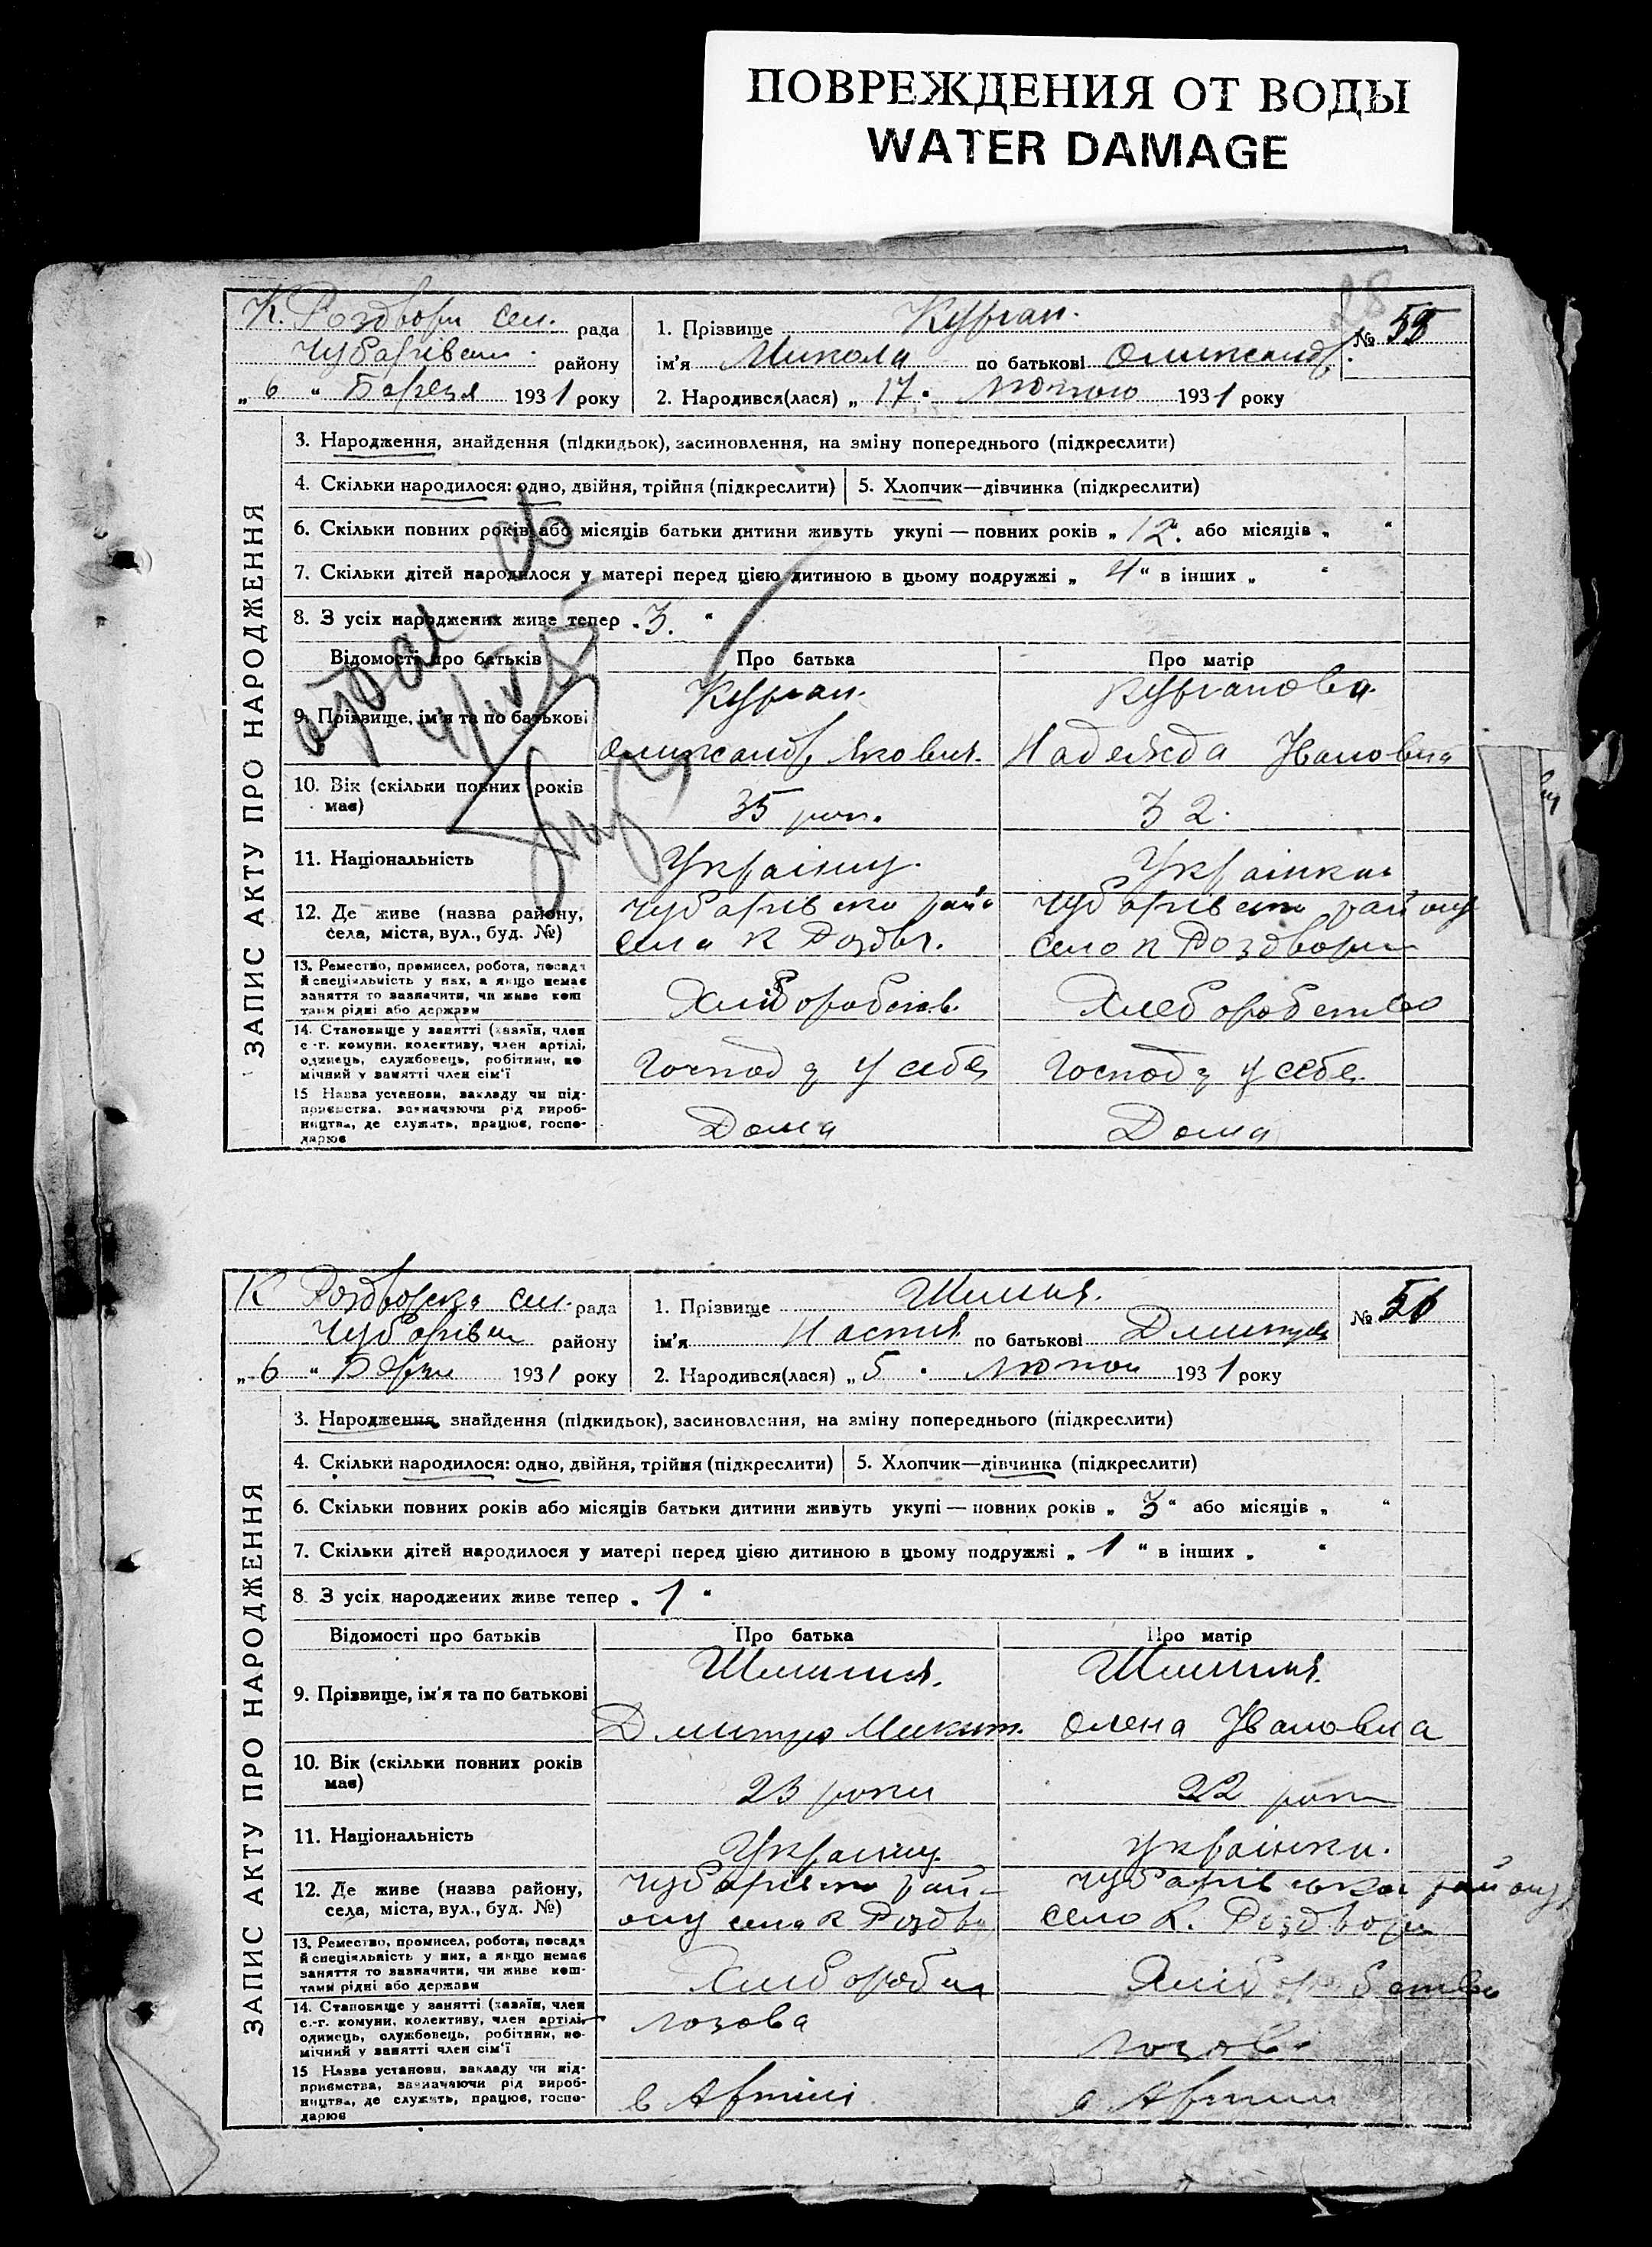 ПОВРЕЖДЕНИЯ ОТ ВОДЫ
WATER DAMAGE
28
К. Роздори сел. рада
Чубарівськ. району
„ 6 “ Березня 1931 року
1. Прізвище Курган.
ім'я Микола по батькові Олександр.
№ 55
2. Народився(лася) „ 17 " лютого 1931 року
ЗАПИС АКТУ ПРО НАРОДЖЕННЯ
3. Народження, знайдення (підкидьок), засиновлення, на зміну попереднього (підкреслити)
4. Скільки народилося: одно, двійня, трійня (підкреслити) 5. Хлопчик—дівчинка (підкреслити)
6. Скільки повних років або місяців батьки дитини живуть укупі — повних років „ 12 “ або місяців „ “
7. Скільки дітей народилося у матері перед цією дитиною в цьому подружжі „ 4 “ в інших „ “
8. З усіх народжених живе тепер „ 3. “
Відомості про батьків Про батька Про матір
9. Прізвище, ім'я та по батькові
Курган. Курганова
Олександр Якович. Надежда Івановна
10. Вік (скільки повних років має) 35 рок. 32.
11. Національність Українец. Українка
12. Де живе (назва району, села, міста, вул., буд. №)
Чубарівськ району
село К Роздори
13. Ремество, промисел, робота, посада й спеціяльність у них, а якщо немає заняття то зазначити, чи живе коштами рідні або держави
Хлеборобство
14. Становище у занятті (хазяїн, член с.-г. комуни, колективу, член артілі, одинець, службовець, робітник, помічний у занятті член сім'ї
Господ у себе Господ у себе
15 Назва установи, закладу чи підприємства, зазначаючи рід виробництва, де служить, працює, господарює
Дома Дома
К Роздорска сел. рада
Чубарівськ району
„ 6 “ Березн 1931 року
1. Прізвище
ім'я Настя по батькові Дмитров
№ 56
2. Народився(лася) „ 5 " лютого 1931 року
ЗАПИС АКТУ ПРО НАРОДЖЕННЯ
3. Народження, знайдення (підкидьок), засиновлення, на зміну попереднього (підкреслити)
4. Скільки народилося: одно, двійня, трійня (підкреслити) 5. Хлопчик—дівчинка (підкреслити)
6. Скільки повних років або місяців батьки дитини живуть укупі — повних років „ 3 “ або місяців „ “
7. Скільки дітей народилося у матері перед цією дитиною в цьому подружжі „ 1 “ в інших „ “
8. З усіх народжених живе тепер „ 1 “
Відомості про батьків Про батька Про матір
9. Прізвище, ім'я та по батькові
Дмитро Микит. Олена Івановна
10. Вік (скільки повних років має) 23 роки 22 роки
11. Національність Українец Українка.
12. Де живе (назва району, села, міста, вул., буд. №)
Чубарівськ району села К Роздо Чубарівська району
село К. Роздори
13. Ремество, промисел, робота, посада й спеціяльність у них, а якщо немає заняття то зазначити, чи живе коштами рідні або держави
Хліборобство
14. Становище у занятті (хазяїн, член с.-г. комуни, колективу, член артілі, одинець, службовець, робітник, помічний у занятті член сім'ї
15 Назва установи, закладу чи підприємства, зазначаючи рід виробництва, де служить, працює, господарює
в Артілі в Артілі